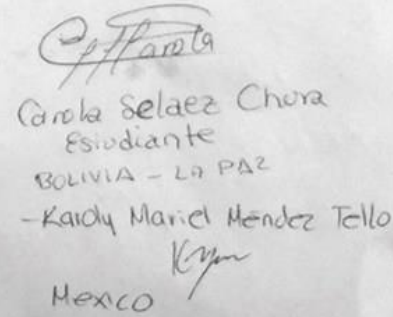 Carola
Carola Selaez Chura
Estudiante
BOLIVIA - LA PAZ
- Karoly Mariel Méndez Tello
Mexico